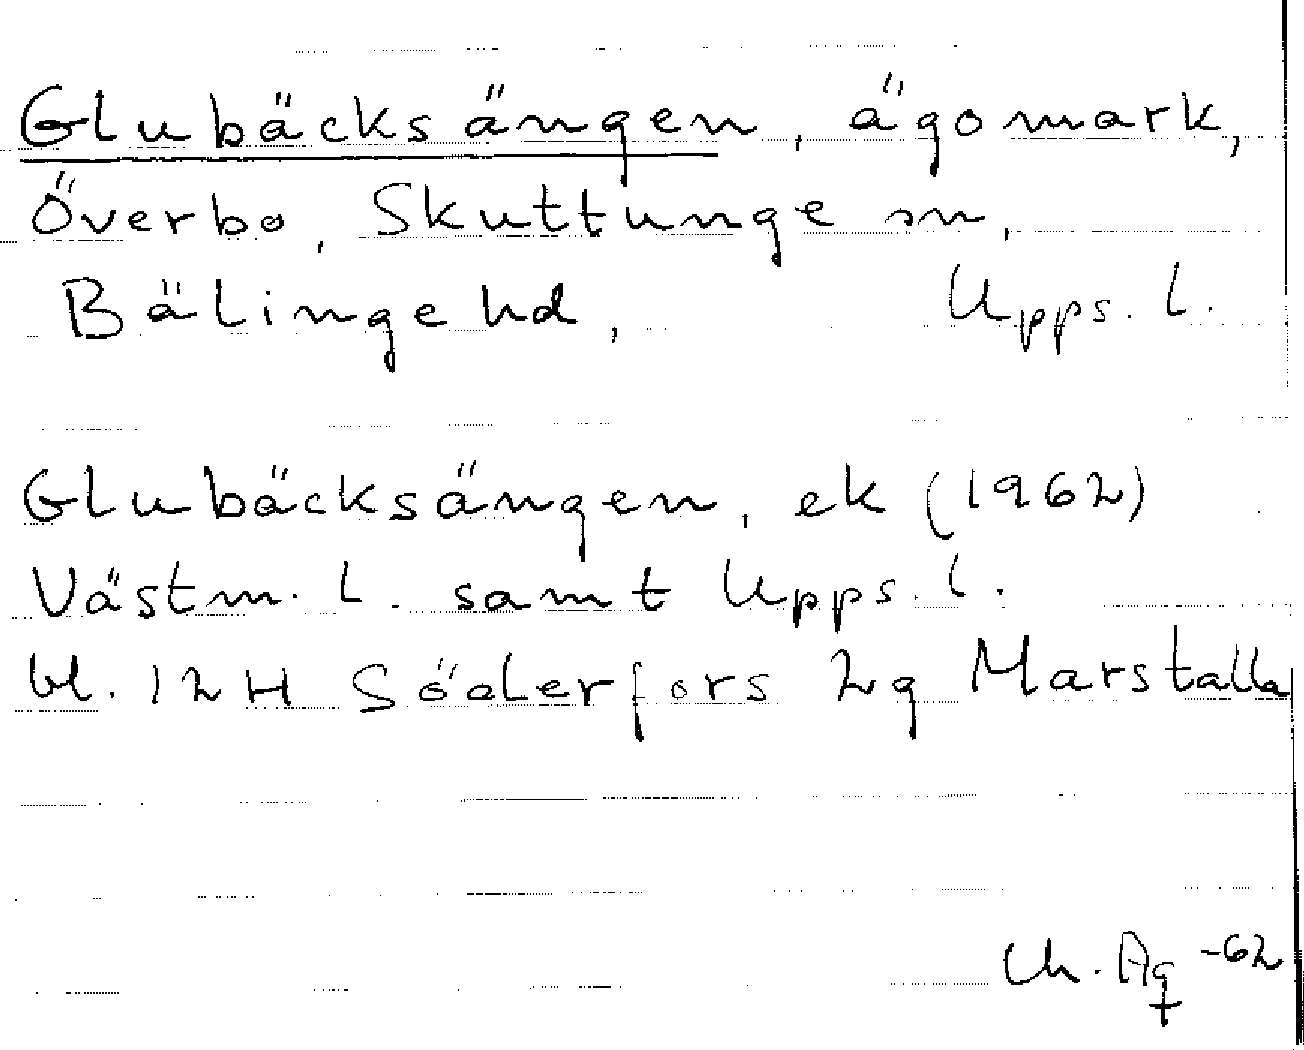 Glubäcksängen, ägomark,
Överbo, Skuttunge sn,
Bälinge hd, Upps. l.
Glubäcksängen, ek (1962)
Västm. l. samt Upps. l.
bl. 12H Söderfors 2g Marstalla
Ch. Ag -62